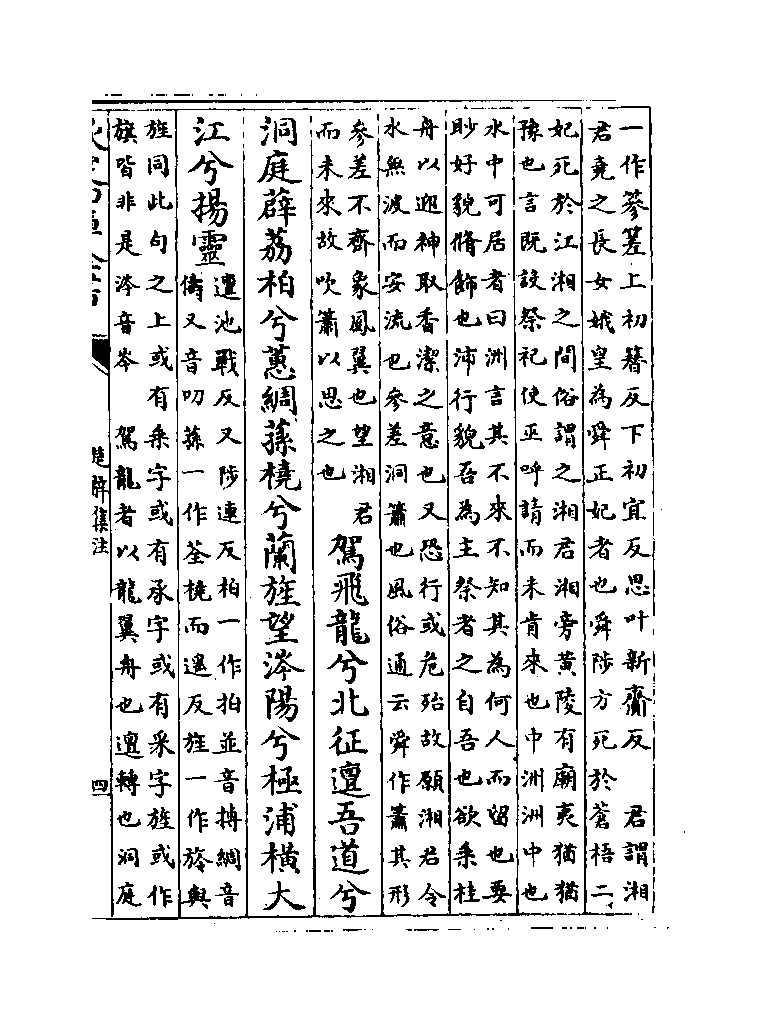 一作篸荖上初簪反下初宜反思叶新齎反 君謂湘
君堯之長女娥皇為舜正妃者也舜陟方死於蒼梧二
妃死於江湘之間俗謂之湘君湘旁黄陵有廟夷猶猶
豫也言既設祭祀使巫呼請而未肯來也中洲洲中也
水中可居者曰洲言其不來不知其為何人而留也要
眇好貌脩飾也沛行貌吾為主祭者之自吾也欲乘桂
舟以迎神取香潔之意也又恐行或危殆故願湘君令
水無波而安流也參差洞簫也風俗通云舜作簫其形
參差不齊象鳳翼也望湘君
而未來故吹簫以思之也
駕飛龍兮北征邅吾道兮
洞庭薜荔柏兮蕙綢蓀橈兮蘭旌望涔陽兮極浦橫大
江兮揚靈
邅池戰反又陟連反柏一作拍並音搏綢音
儔又音叨蓀一作荃橈而遥反旌一作旍與
旌同此句之上或有乘字或有承字或有采字旌或作
旗皆非是涔音岑 駕龍者以龍翼舟也邅轉也洞庭
楚辭集注
四